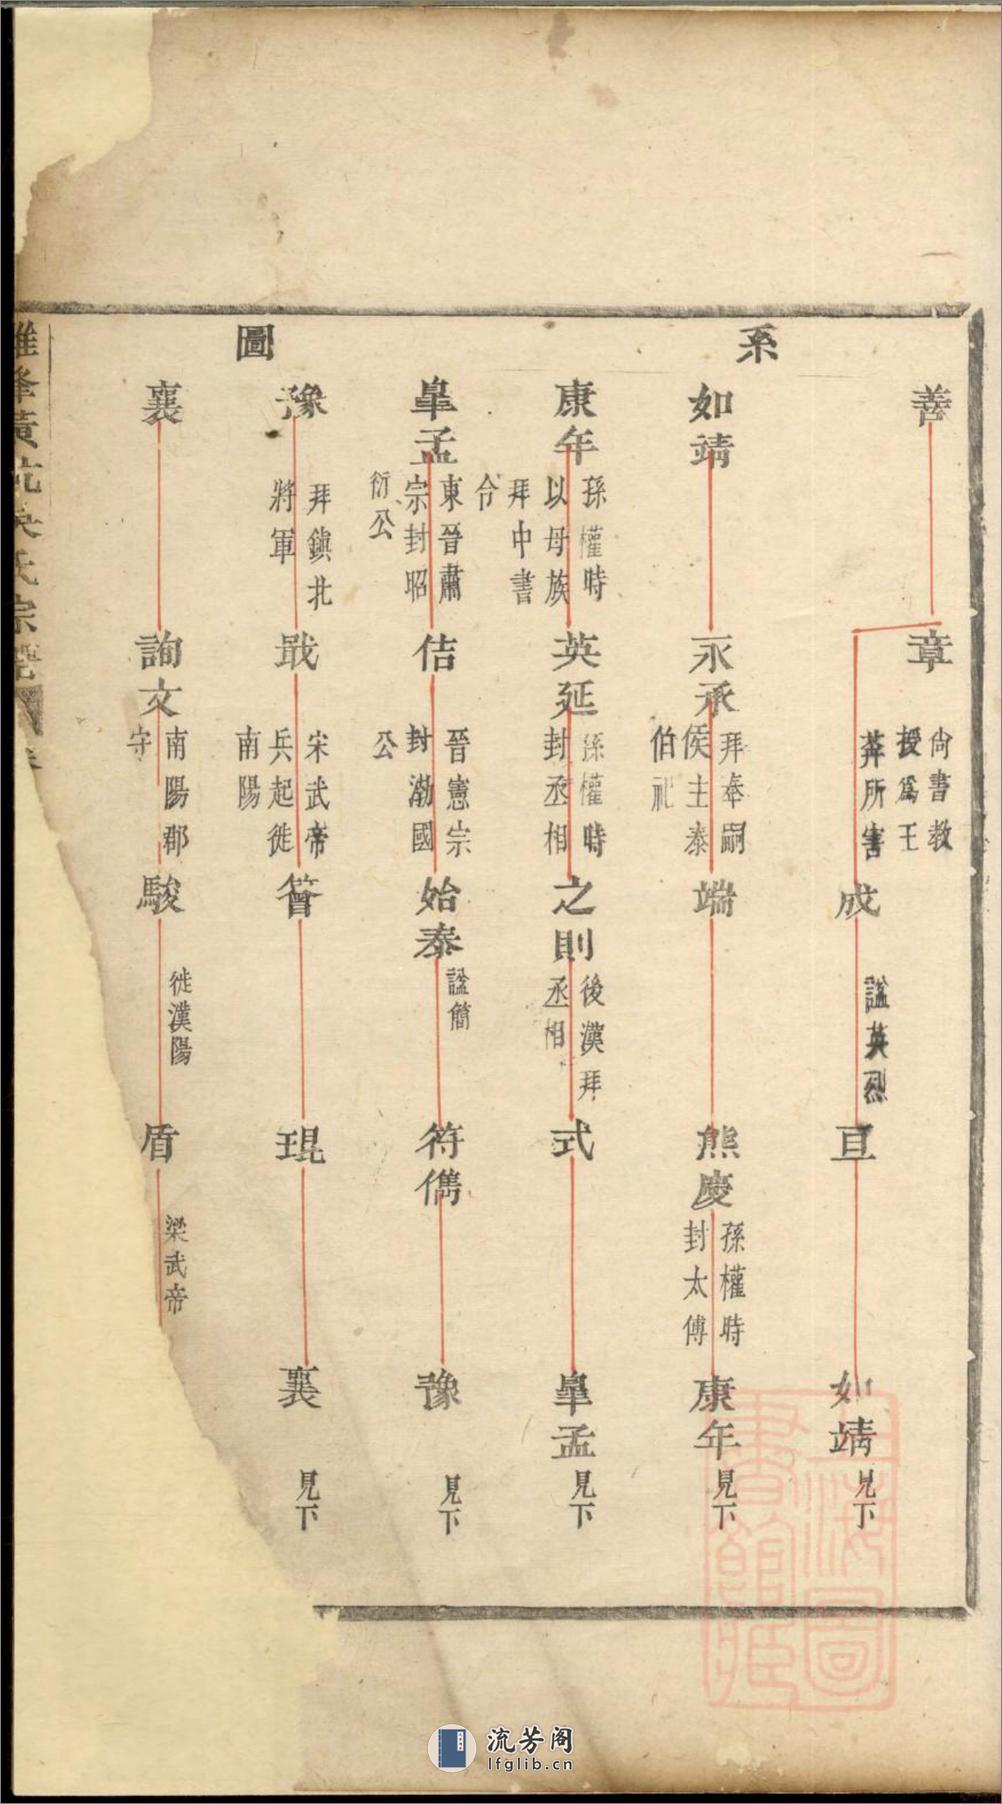 系
圖
善
章
尚書教
授為王
莽所害
成
諡英烈
亘
如靖
見下
如靖
永承
拜奉嗣
侯主泰
伯祀
端
熊慶
孫權時
封太傅
康年
見下
康年
孫權時
以母族
拜中書
令
英延
孫權時
封丞相
之則
後漢拜
丞相
式
皐孟
見下
皐孟
東晉肅
宗封昭
衍公
佶
晉憲宗
封渤國
公
始泰
諡簡
符儁
豫
見下
豫
拜鎮北
將軍
戢
宋武帝
兵起徙
南陽
簪
琨
襄
見下
襄
詢文
南陽郡
守
駿
徙漢陽
盾
梁武帝
峯黃
氏宗譜
上海圖書館藏
流芳阁
lfglib.cn